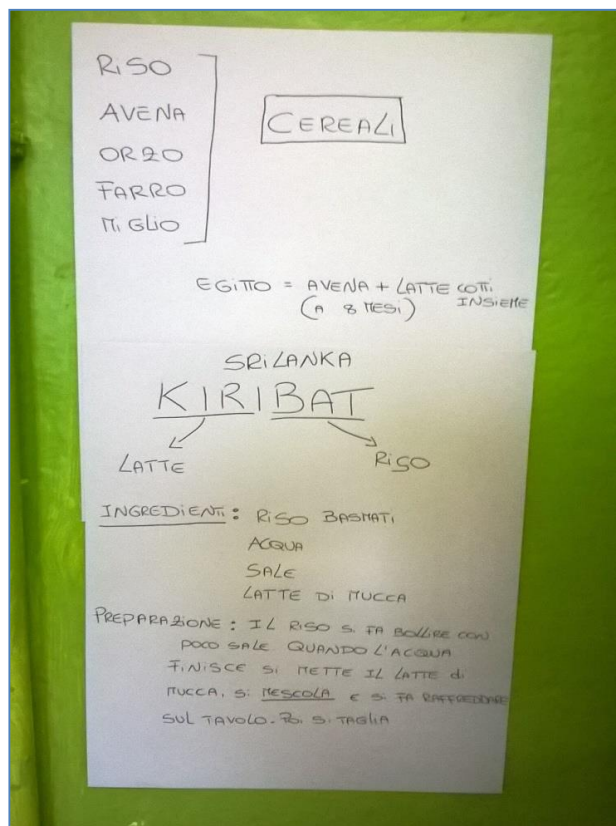 RISO
AVENA
ORZO
FARRO
MIGLIO
CEREALI
EGITTO = AVENA + LATTE COTTI
(A 8 MESI) INSIEME
SRILANKA
KIRIBAT
LATTE RISO
INGREDIENTI: RISO BASMATI
ACQUA
SALE
LATTE DI MUCCA
PREPARAZIONE: IL RISO SI FA BOLLIRE CON
POCO SALE QUANDO L'ACQUA
FINISCE SI METTE IL LATTE di
MUCCA, SI MESCOLA E SI FA RAFFREDDARE
SUL TAVOLO. POI SI TAGLIA